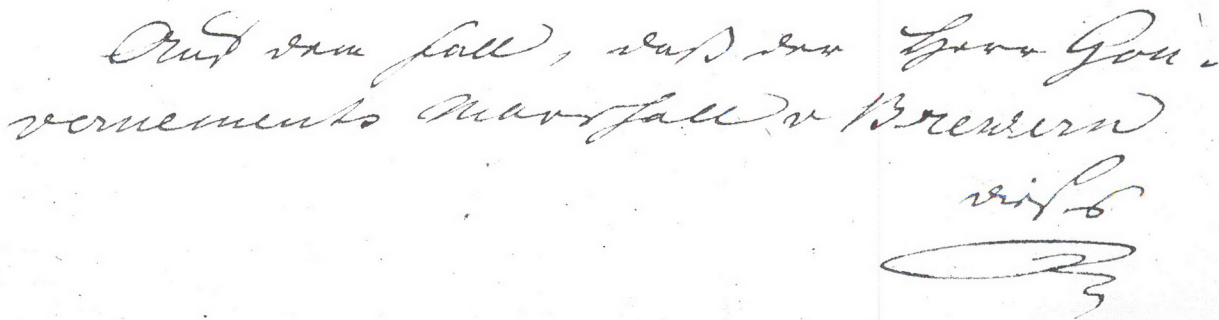 Auf dem Fall, daß der Herr Gou-
vernements Marschall v Brewern
dieses